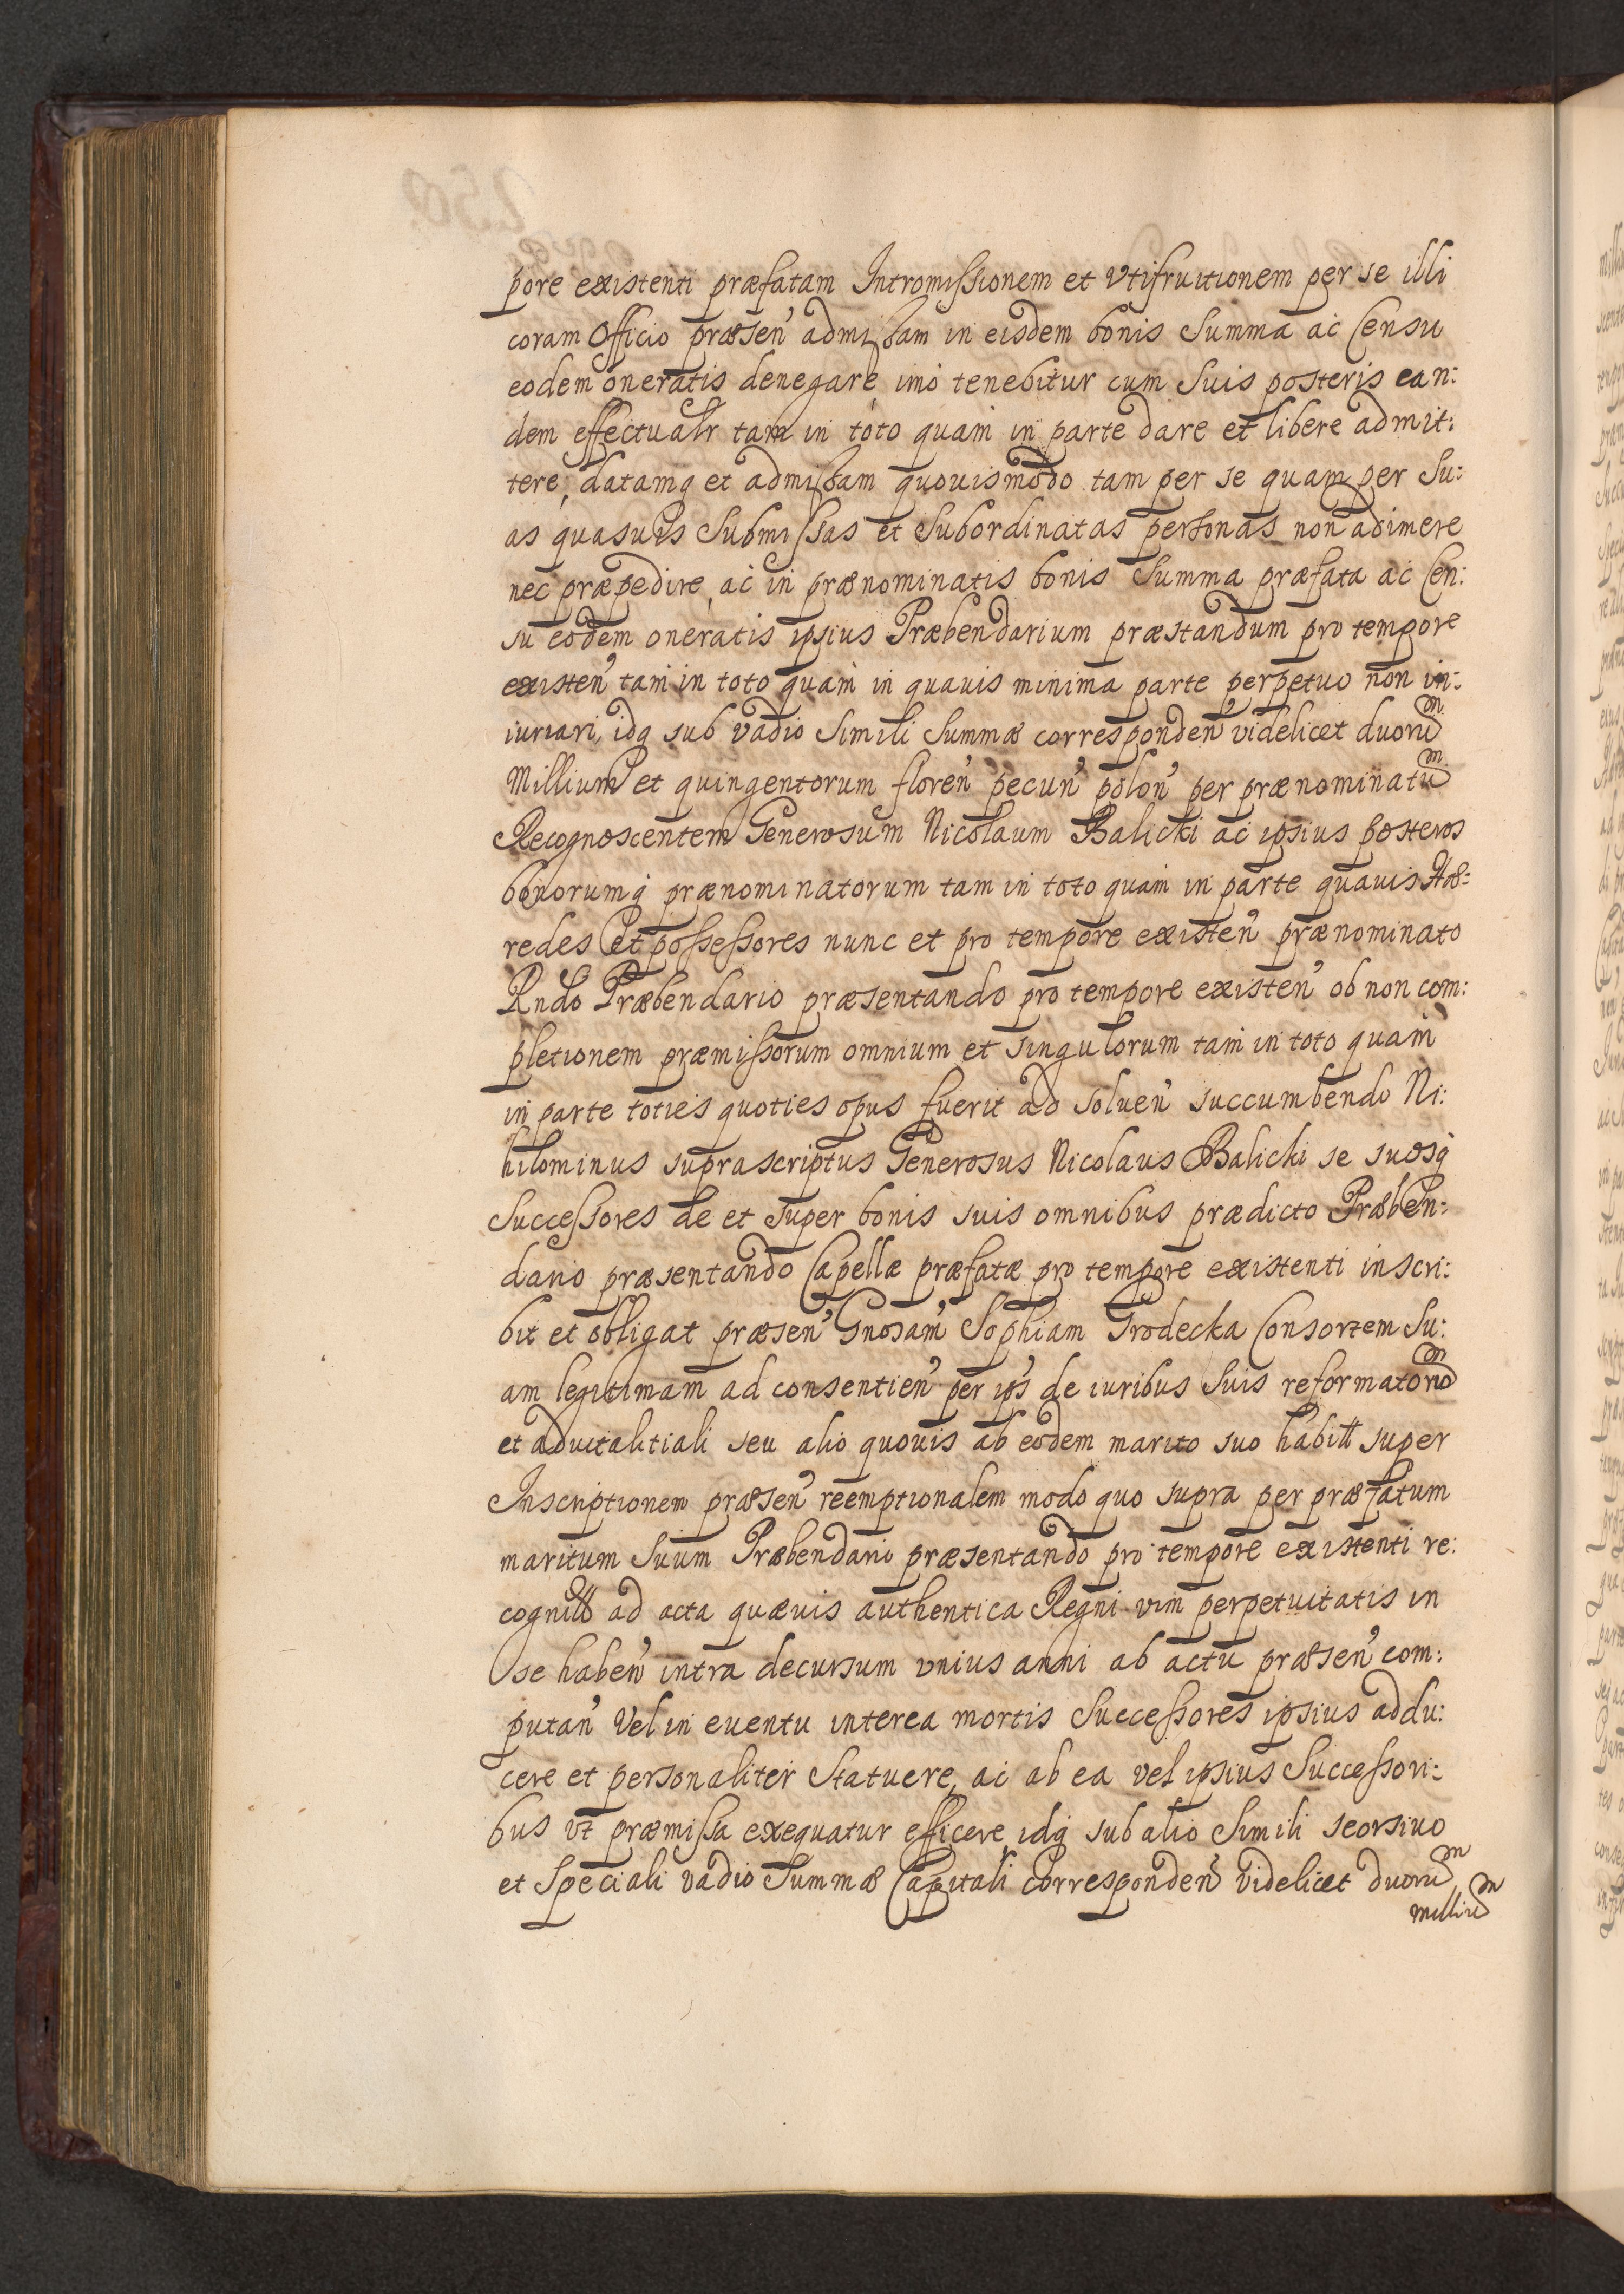 pore existenti præfatam Intromissionem et Vtifruitionem per se illi
coram Officio præsen' admissam in eisdem bonis Summa ac Censu
eodem oneratis denegare, imo tenebitur cum Suis posteris ean:
dem effectualr tam in toto quam in parte dare et libere admit:
tere, datamq et admissam quouismodo tam per se quam per Su:
as quasuis Submissas et Subordinatas personas non adimere
nec præpedire, ac in prænominatis bonis Summa præfata ac Cen:
su eodem oneratis ipsius Præbendarium præstandum pro tempore
existen' tam in toto quam in quauis minima parte perpetuo non in:
iuriari, idq sub vadio Simili Summæ corresponden' videlicet duorum
Millium et quingentorum floren' pecun' polon' per prænominatum
Recognoscentem Generosum Nicolaum Balicki ac ipsius posteros
bonorumq prænominatorum tam in toto quam in parte quauis Hæ:
redes et possessores nunc et pro tempore existen' prænominato
Rndo Præbendario præsentando pro tempore existen' ob non com:
pletionem præmissorum omnium et singulorum tam in toto quam
in parte toties quoties opus fuerit ad soluen' succumbendo Ni:
hilominus suprascriptus Generosus Nicolaus Balicki se suosq
Successores de et super bonis suis omnibus prædicto Præben:
dario præsentando Capellæ præfatæ pro tempore existenti inscri:
bit et obligat præsen' Gnosam Sophiam Grodecka Consortem Su:
am legitimam ad consentien' per ips' de iuribus Suis reformatorium
et aduitalitiali seu alio quouis ab eodem marito suo habitt super
Inscriptionem præsen' reemptionalem modo quo supra per præfatum
maritum Suum Præbendario præsentando pro tempore existenti re:
ad acta quæuis authentica Regni vim perpetuitatis in
se haben' intra decursum vnius anni ab actu præsen' com:
putan' Vel in euentu interea mortis Successores ipsius addu:
cere et personaliter Statuere, ac ab ea vel ipsius Successori:
bus vt præmissa exequatur efficere idq sub alio Simili seorsiuo
et Speciali vadio Summæ Capitali Corresponden' Videlicet duorum
Millium